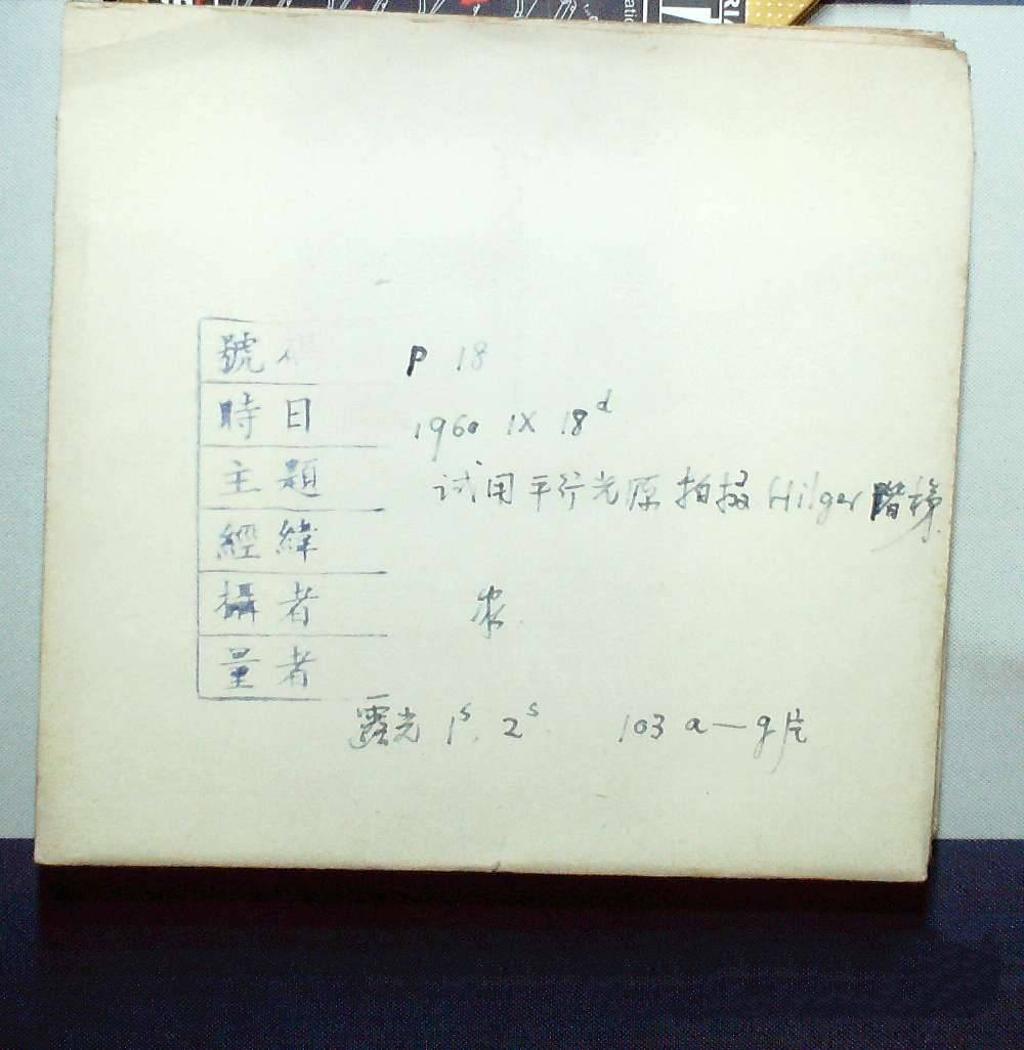 號碼 P 18
時日 1960 IX 18d
主題 试用平行光源拍摄 Hilger 階梯
經緯
攝者
量者
露光 1s. 2s. 103 a—g片